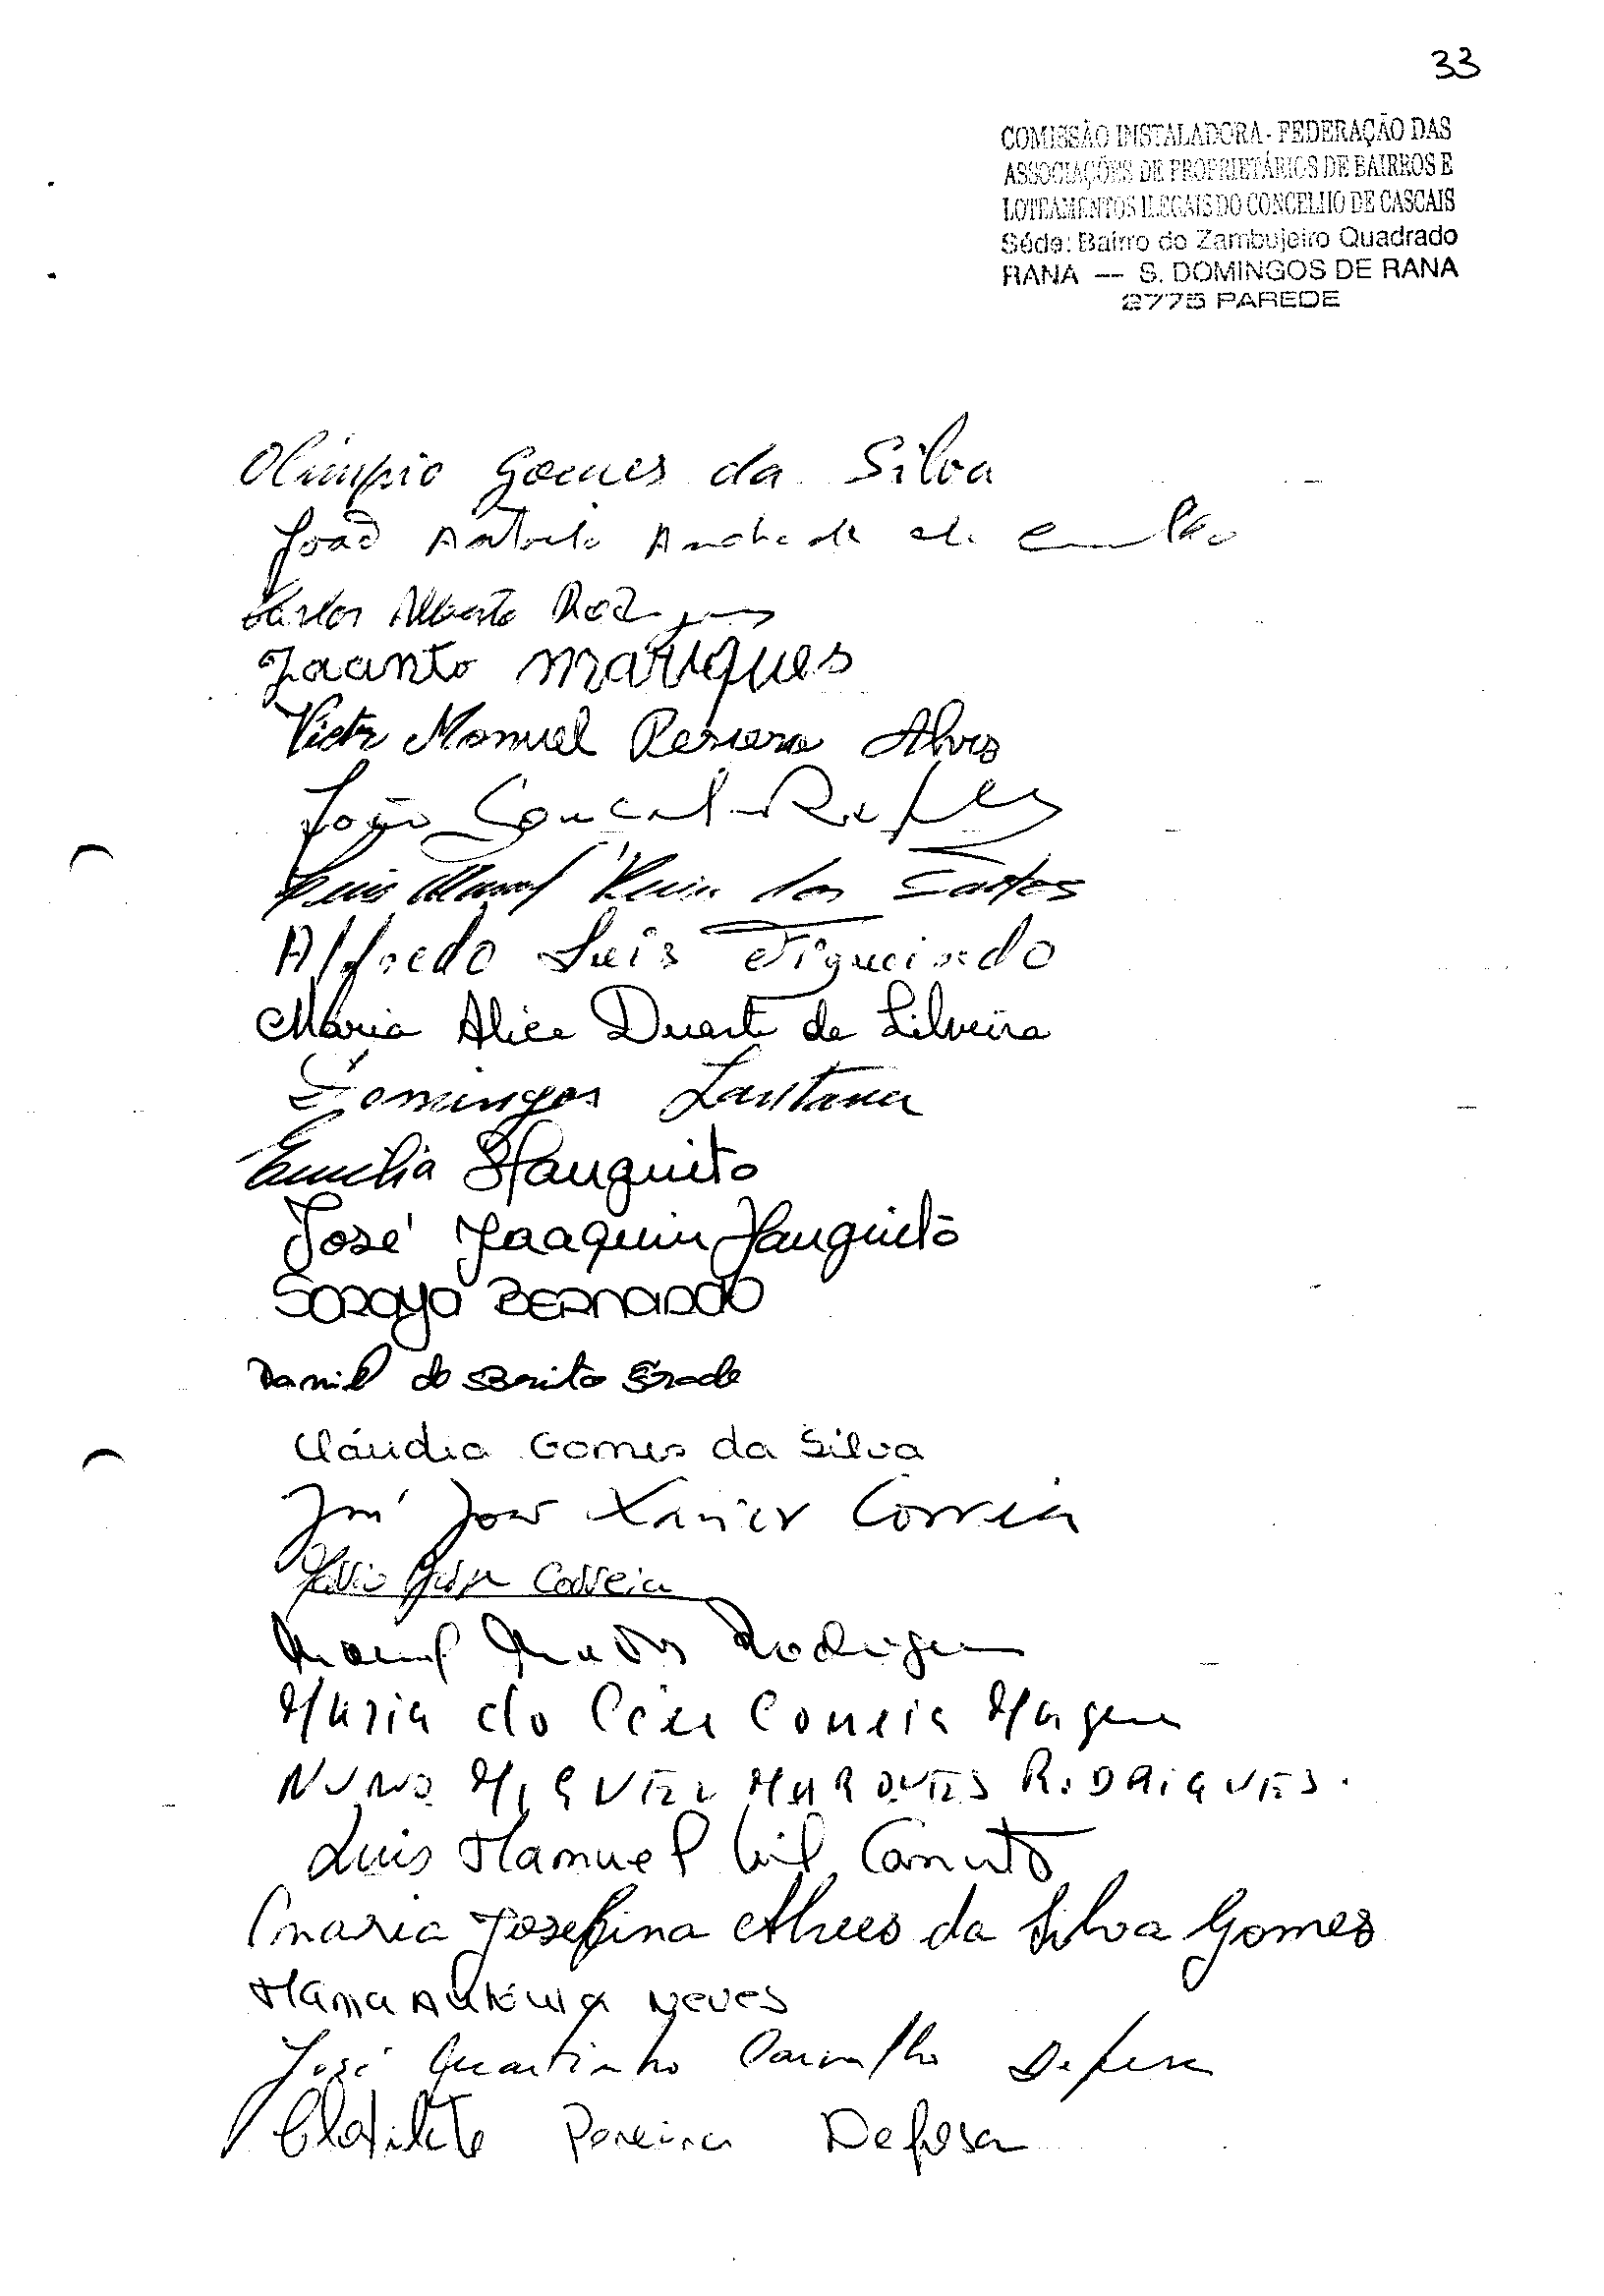 33
COMISSÃO INSTALADORA - FEDERAÇÃO DAS
ASSOCIAÇÕES DE PROPRIETÁRIOS DE BAIRROS E
LOTEAMENTOS ILEGAIS DO CONCELHO DE CASCAIS
Séde: Bairro do Zambujeiro Quadrado
RANA — S. DOMINGOS DE RANA
2775 PAREDE
Olimpio Gomes da Silva
João António Andrade de
Carlos Alberto
Jacinto Marques
Victor Manuel Alves
João
Luis Manuel dos Santos
Alfredo Luis Figueiredo
Maria Alice Duarte da Silveira
Domingos Santana
Emilia
José Joaquim
Soraya BERNARDO
Daniel de Brito Grade
Cláudia Gomes da Silva
José Xavier Correia
Correia
Manuel Rodrigues
Maria do Céu Correia
NUNO MIGUEL MARQUES RODRIGUES.
Luis Manuel Gil Canuto
Maria Josefina Alves da Silva Gomes
Maria António Neves
José Quartinho Carvalho Defesa
Clotilde Pereira Defesa